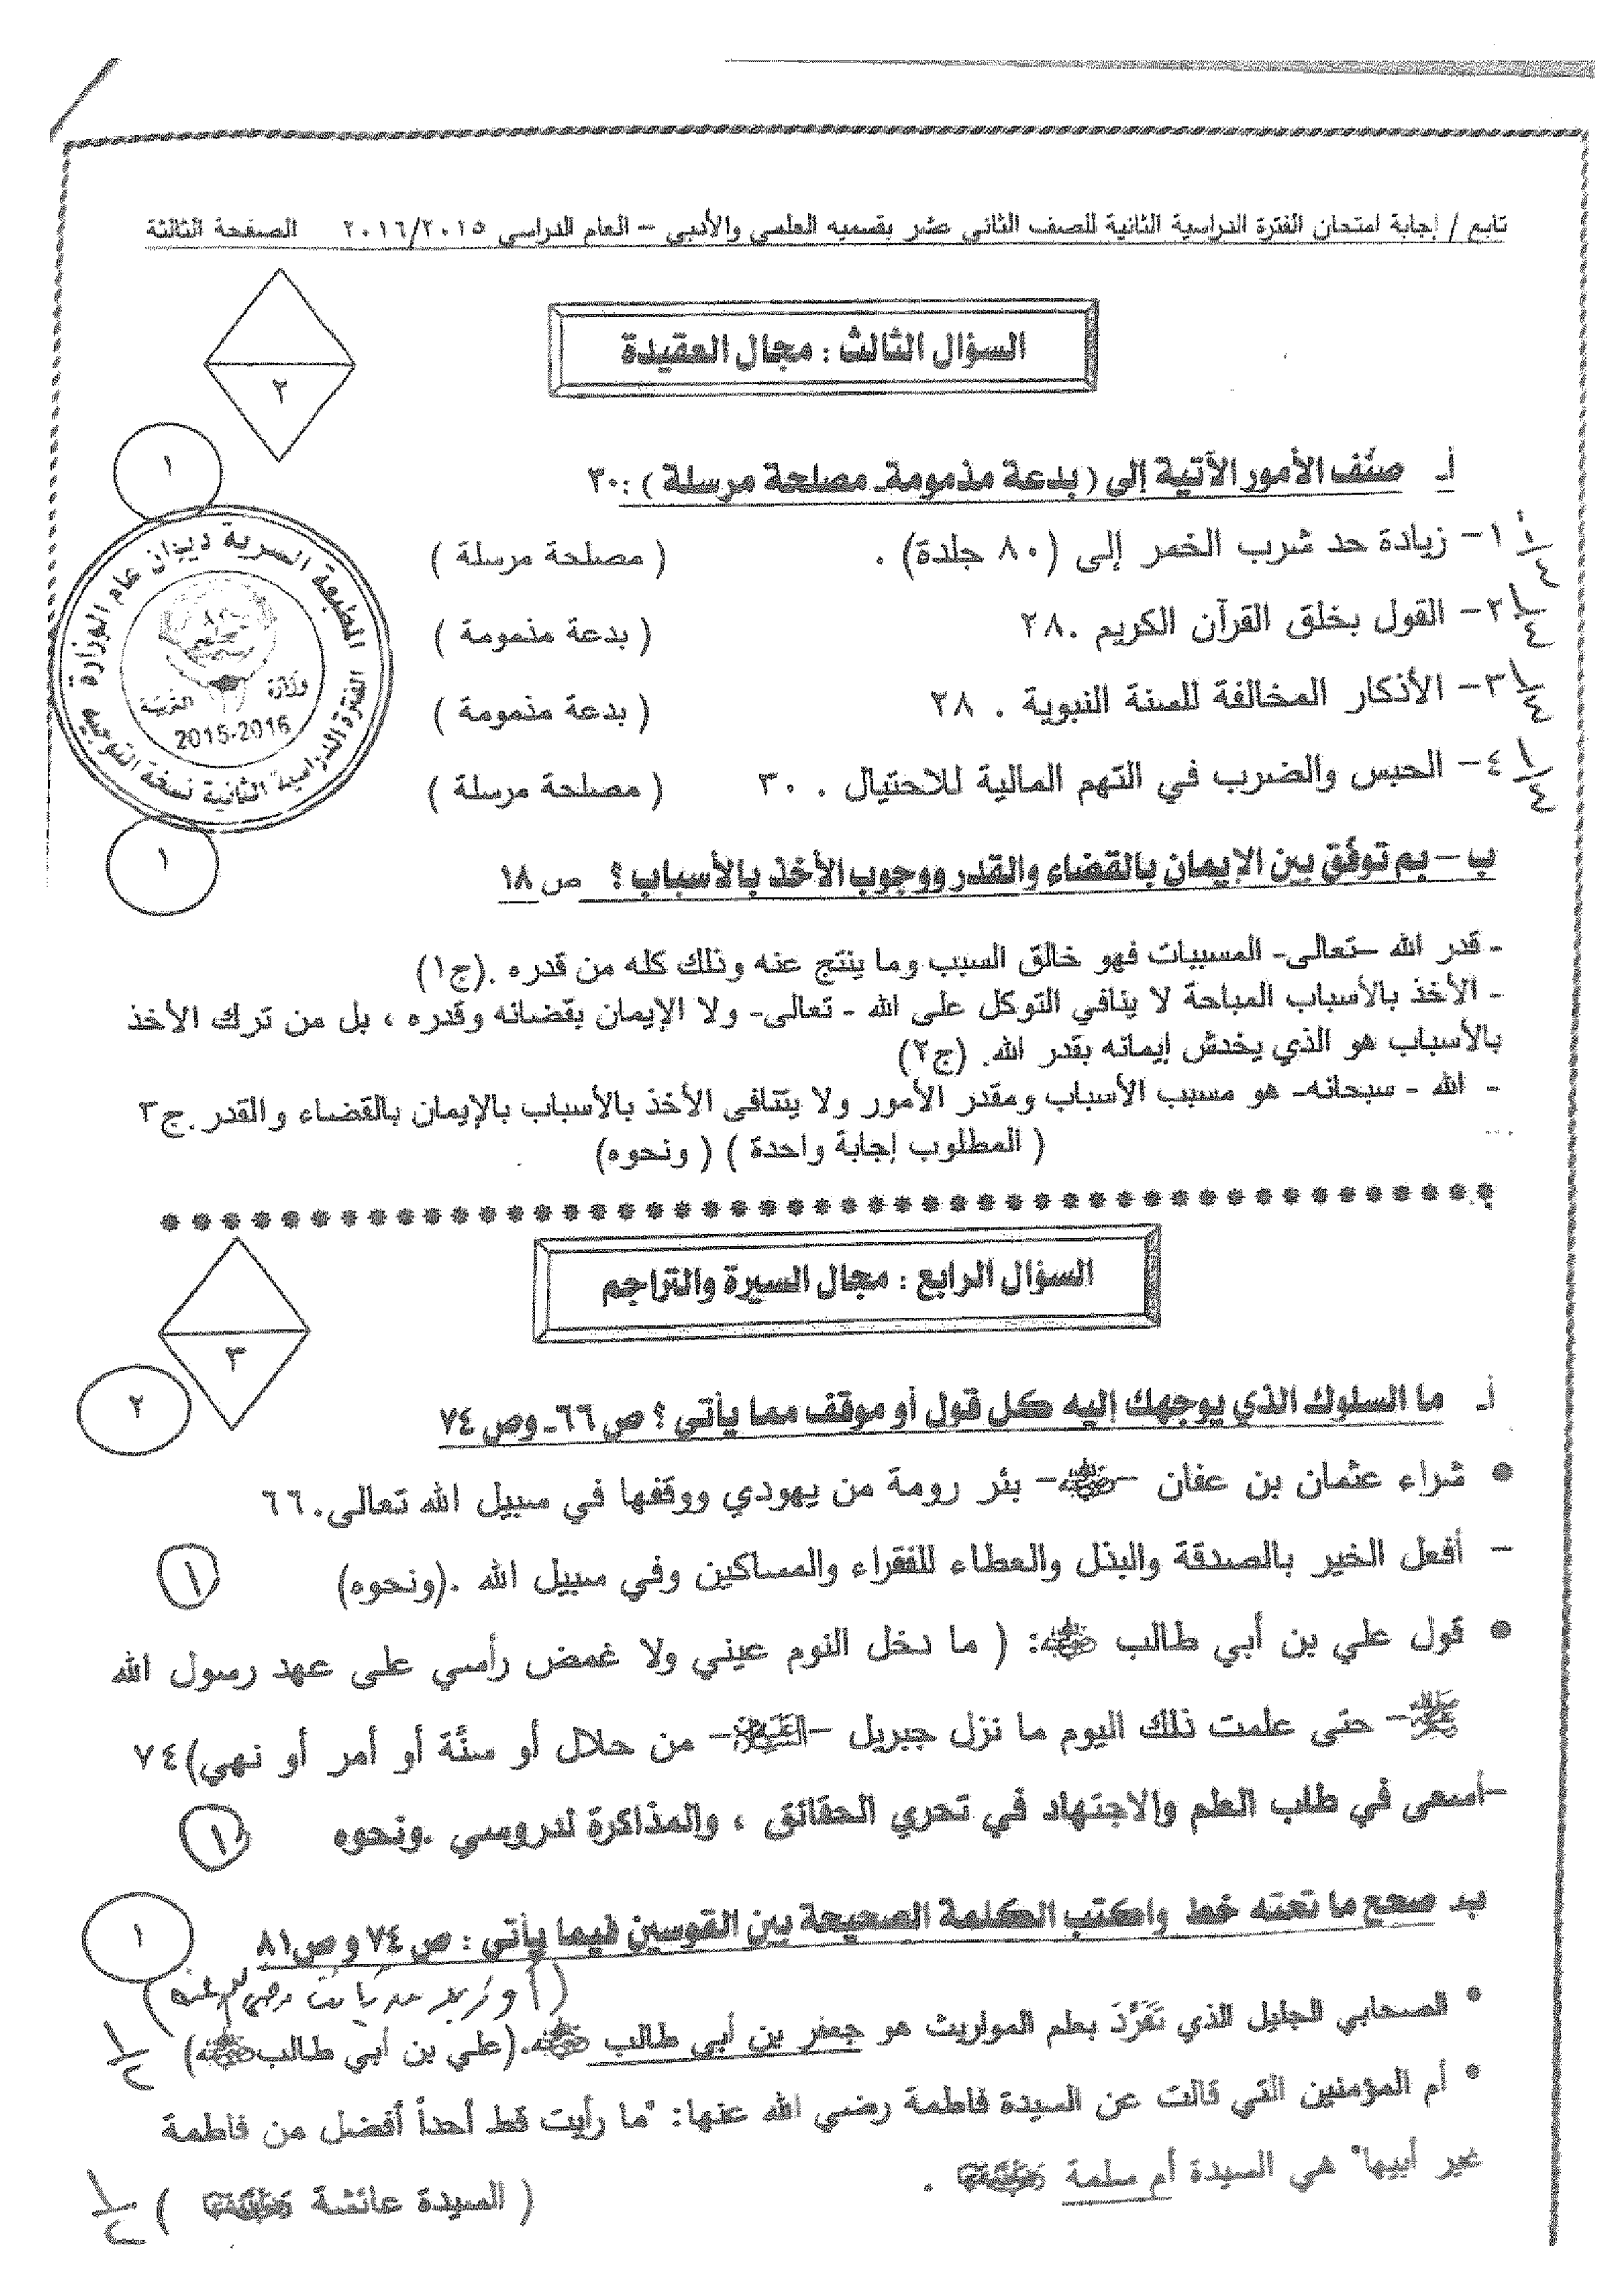 تابع / إجابة امتحان الفترة الدراسية الثانية للصف الثاني عشر بقسميه العلمي والأدبي – العام الدراسي ٢٠١٦/٢٠١٥ الصفحة الثالثة
السؤال الثالث : مجال العقيدة
٢
١
أـ صنّف الأمور الآتية إلى ( بدعة مذمومة ـ مصلحة مرسلة ) :٣٠
١– زيادة حد شرب الخمر إلى (٨٠ جلدة) . ( مصلحة مرسلة ) ١/٤
٢– القول بخلق القرآن الكريم .٢٨ ( بدعة مذمومة ) ١/٤
٣– الأذكار المخالفة للسنة النبوية . ٢٨ ( بدعة مذمومة ) ١/٤
٤– الحبس والضرب في التهم المالية للاحتيال . ٣٠ ( مصلحة مرسلة ) ١/٤
المطبعة السرية ديوان عام الوزارة
وزارة التربية
2015-2016
الفترة الدراسية الثانية نسخة التوجيه
١
ب – بم توفّق بين الإيمان بالقضاء والقدر ووجوب الأخذ بالأسباب ؟ ص ١٨
- قدر الله –تعالى- المسببات فهو خالق السبب وما ينتج عنه وذلك كله من قدره .(ج١)
- الأخذ بالأسباب المباحة لا ينافي التوكل على الله - تعالى- ولا الإيمان بقضائه وقدره ، بل من ترك الأخذ
بالأسباب هو الذي يخدش إيمانه بقدر الله. (ج٢)
- الله - سبحانه- هو مسبب الأسباب ومقدر الأمور ولا يتنافى الأخذ بالأسباب بالإيمان بالقضاء والقدر.ج٣
( المطلوب إجابة واحدة ) ( ونحوه)
السؤال الرابع : مجال السيرة والتراجم
٣
٢
أـ ما السلوك الذي يوجهك إليه كل قول أو موقف مما يأتي ؟ ص ٦٦ـ وص ٧٤
● شراء عثمان بن عفان –رضي الله عنه– بئر رومة من يهودي ووقفها في سبيل الله تعالى.٦٦
– أفعل الخير بالصدقة والبذل والعطاء للفقراء والمساكين وفي سبيل الله .(ونحوه) ١
● قول علي بن أبي طالب رضي الله عنه: ( ما دخل النوم عيني ولا غمض رأسي على عهد رسول الله
ﷺ– حتى علمت ذلك اليوم ما نزل جبريل –عليه السلام– من حلال أو سنّة أو أمر أو نهي)٧٤
–أسعى في طلب العلم والاجتهاد في تحري الحقائق ، والمذاكرة لدروسي .ونحوه ١
١
بـ صحح ما تحته خط واكتب الكلمة الصحيحة بين القوسين فيما يأتي : ص ٧٤ و ص٨١
(أو زيد بن ثابت رضي الله عنه)
• الصحابي الجليل الذي تَفَرَّدَ بعلم المواريث هو جعفر بن أبي طالب رضي الله عنه.(علي بن أبي طالب رضي الله عنه) ١/٢
• أم المؤمنين التي قالت عن السيدة فاطمة رضي الله عنها: "ما رأيت قط أحداً أفضل من فاطمة
غير أبيها" هي السيدة أم سلمة رضي الله عنها . ( السيدة عائشة رضي الله عنها ) ١/٢